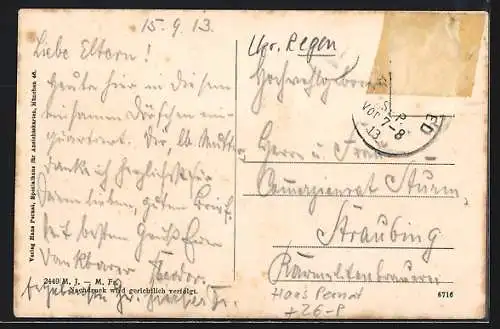 15.9.13.
Liebe Eltern!
Heute hier in diesem
einsamen Dörfchen ein-
quartiert. Der lb. Mutter
danke ich herzlichst für
ihren lieben, guten Brief.
Seit besten Grüßen Euer
dankbarer Theodor.
2449 M. J. — M. Fr.
Nachdruck wird gerichtlich verfolgt.
Verlag Hans Pernat, Spezialhaus für Ansichtskarten, München 46.
Regen
Hochwohlgeboren
SEP.
VOR. 7-8
13
ED
Herrn u. Frau
Commerzienrat Sturm,
Straubing
Karmelitenbrauerei
Hans Pernat
+26-P
6716